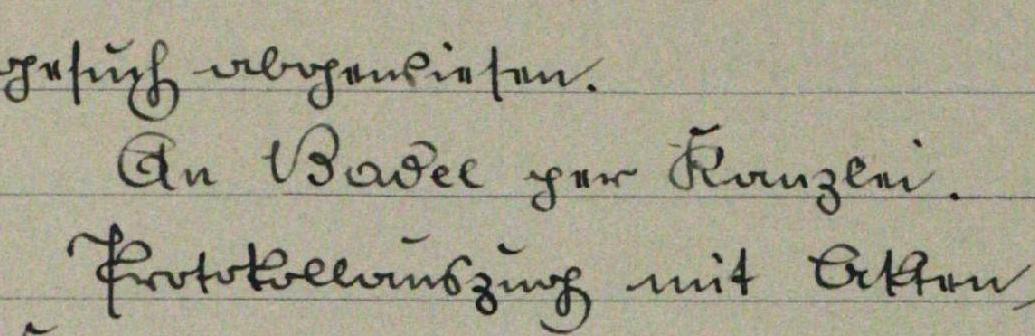 gesuch abgewiesen.
An Badel per Kanzlei.
Protokollauszug mit Akten